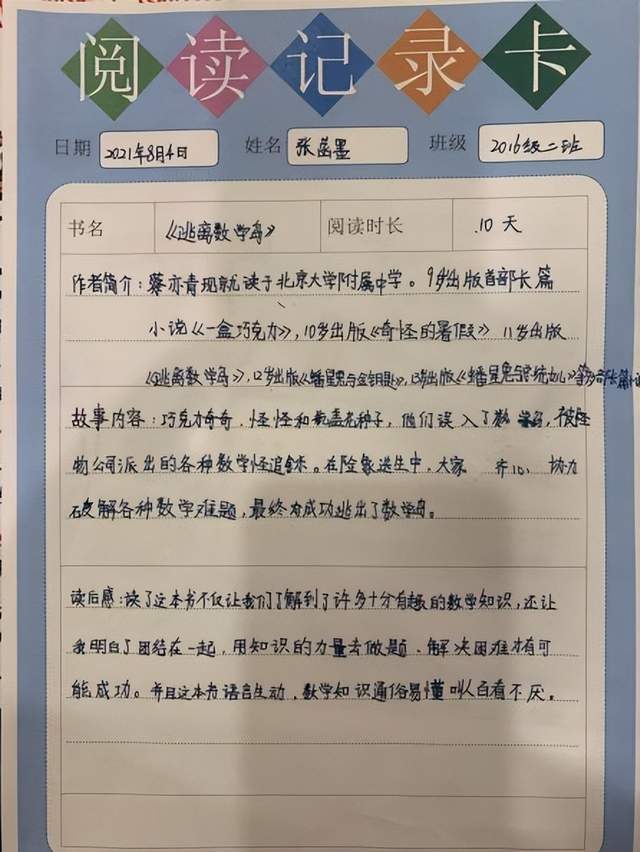 阅读记录卡
日期 2021年8月4日 姓名 张菡墨 班级 2016级二班
书名 《逃离数学岛》 阅读时长 10天
作者简介：蔡亦青现就读于北京大学附属中学。9岁出版首部长篇
小说《一盒巧克力》，10岁出版《奇怪的暑假》 11岁出版
《逃离数学岛》，12岁出版《蟠星愚与金钥匙》，13岁出版《蟠星愚与 》等多部长篇小说
故事内容：巧克力奇奇，怪怪和 种子，他们误入了数 ，被怪
物公司派出的各种数学怪追 。在险象逃生中，大家 齐心 协力
破解各种数学难题，最终 成功逃出了数学岛。
读后感：读了这本书不仅让我们了解到了许多十分有趣的数学知识，还让
我明白了团结在一起，用知识的力量去做题、解决困难才有可
能成功。并且这本书语言生动，数学知识通俗易懂叫人百看不厌。